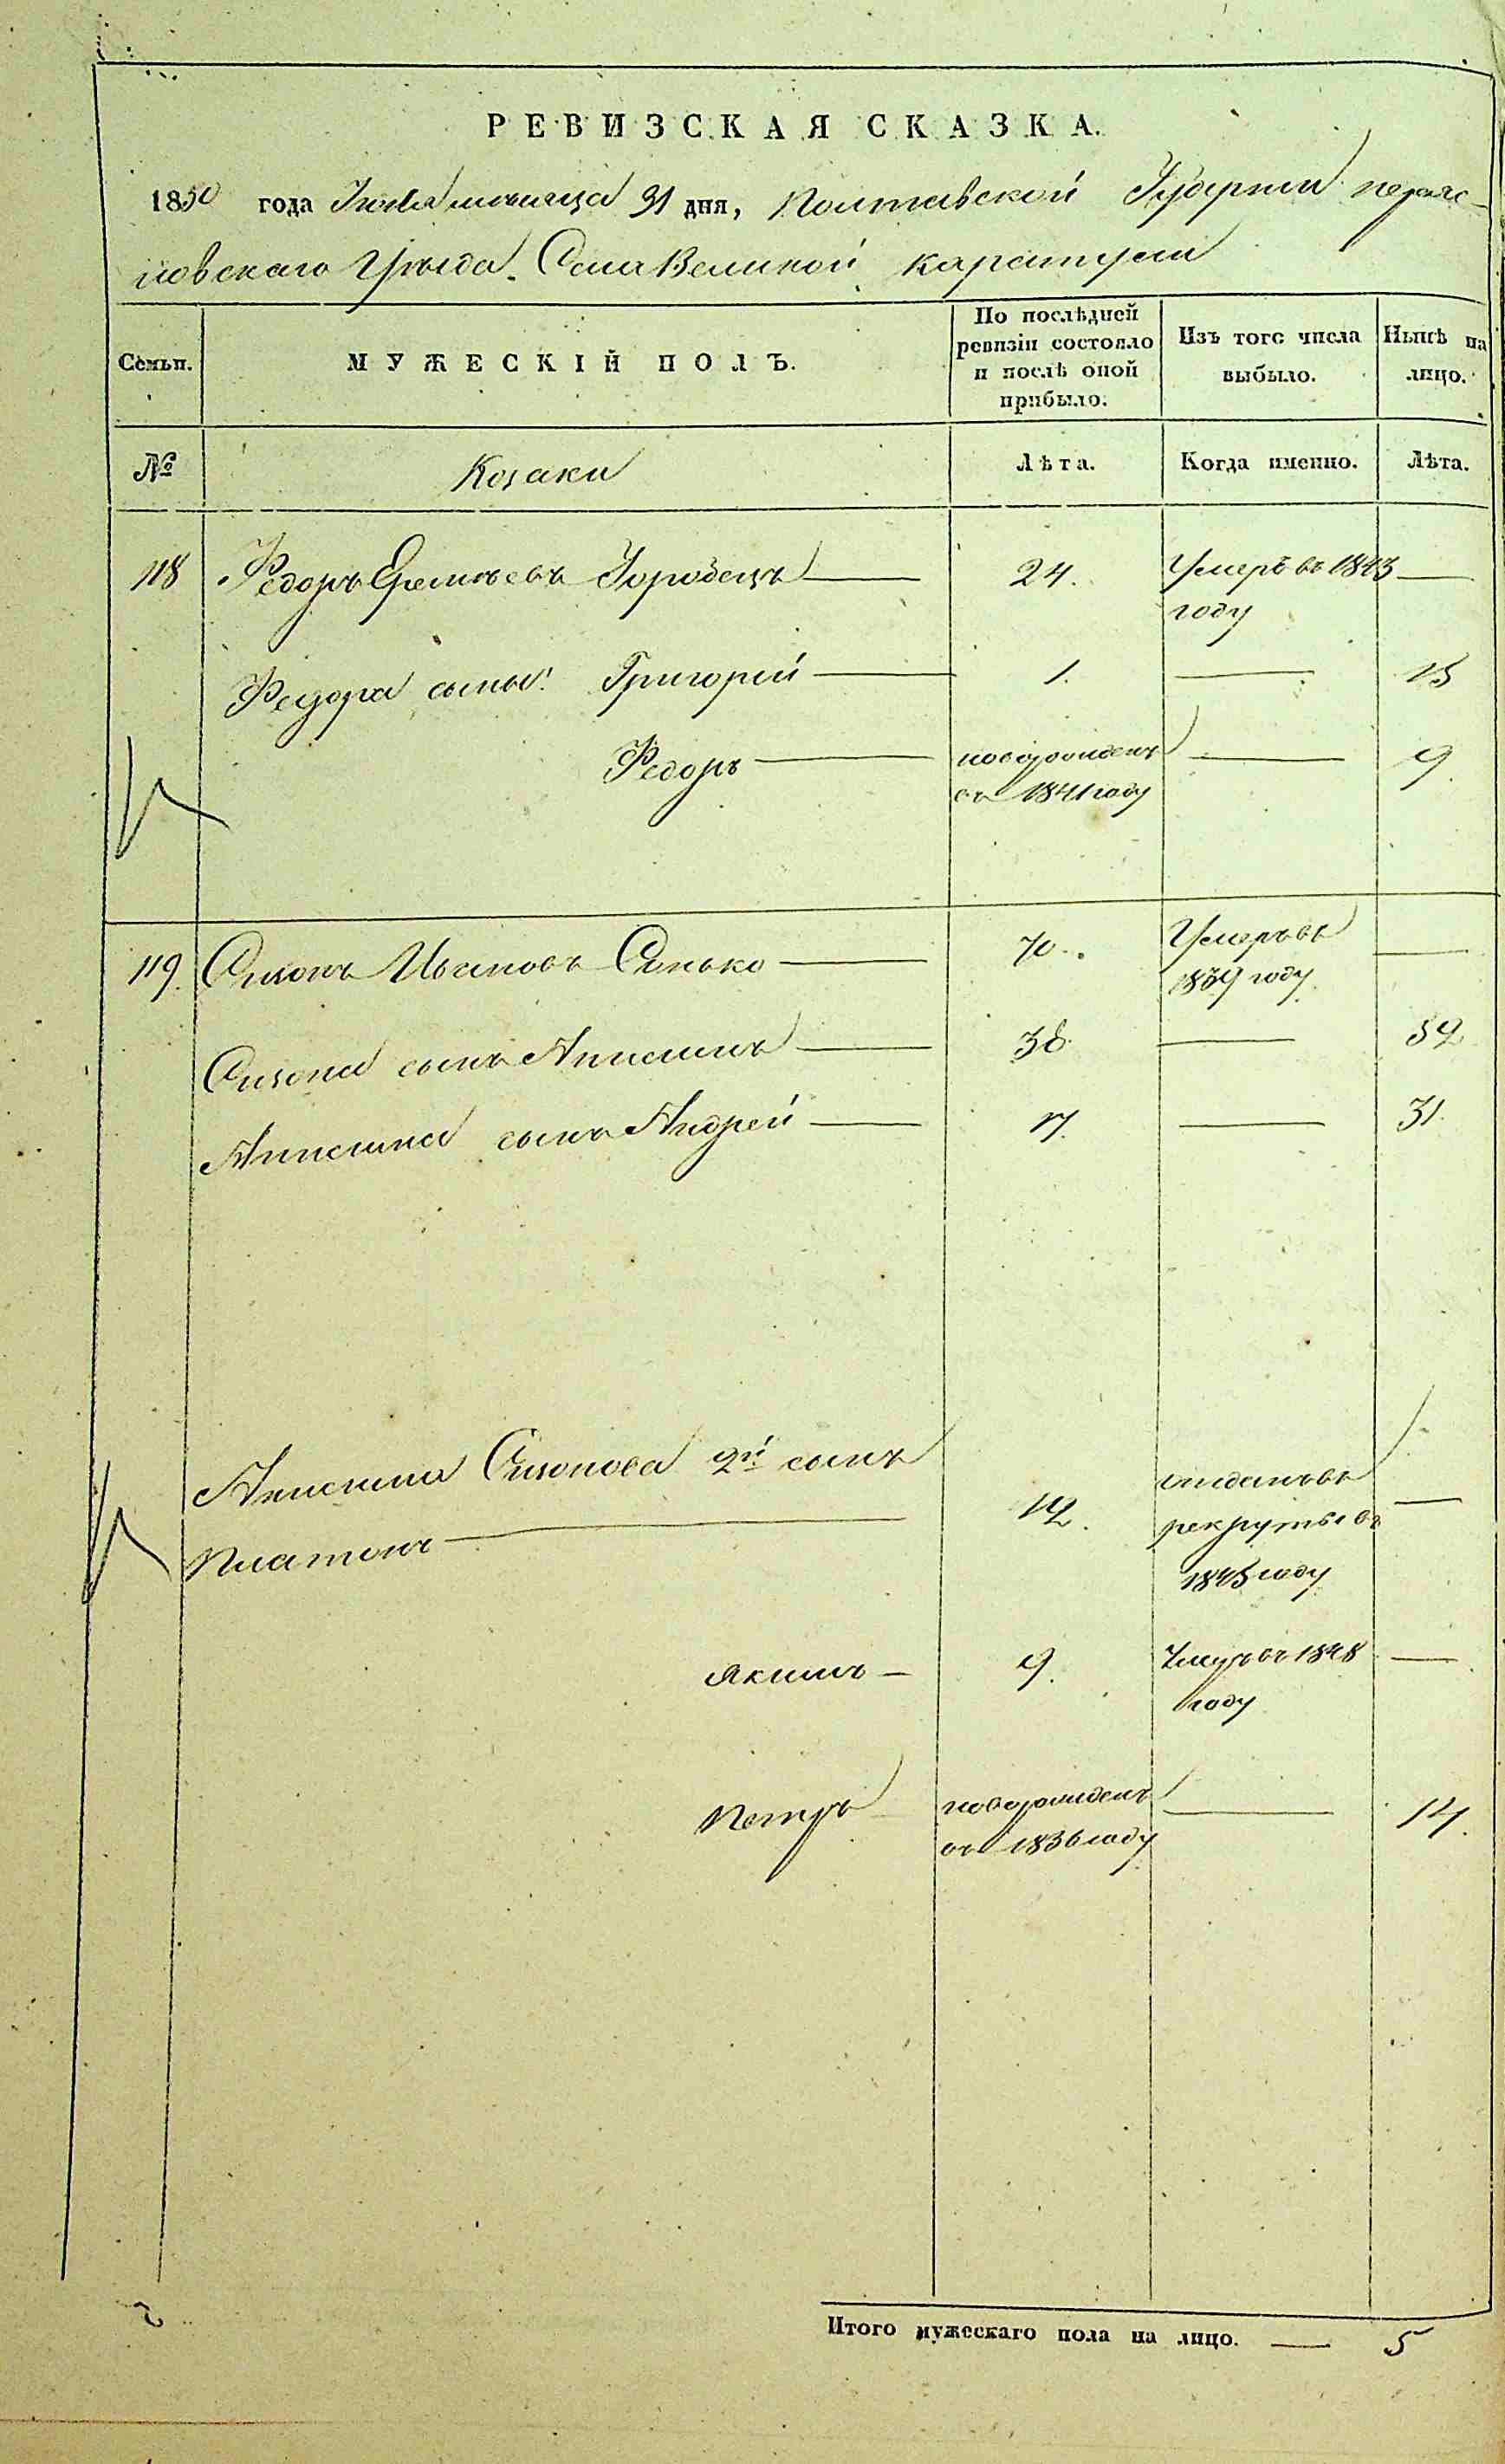 РЕВИЗСКАЯ СКАЗКА.
1850 года Июля месяца 31 дня, Полтавской Губернии Переяс-
ловскаго Уезда Села Великой Каратули
Семьи.
МУЖЕСКІЙ ПОЛЪ.
По послѣдней ревизіи состояло и послѣ оной прибыло.
Изъ того числа выбыло.
Нынѣ на лицо.
№
Козаки
Лѣта.
Когда именно.
Лѣта.
118 Федоръ Еремѣевъ Городецъ — 24. Умеръ въ 1843 —
году
Федора сыны: Григорій — 1. — 15
Федоръ — новорожденъ — 9.
въ 1841 году
119. Симонъ Ивановъ Сонько — 70. Умеръ въ —
1839 году
Симона сынъ Анисимъ — 38. — 52
Анисима сынъ Андрей — 17. — 31.
Анисима Симонова 2й сынъ отданъ въ
Платонъ — 12. рекруты въ —
1845 году
Якимъ — 9. Умеръ въ 1848 —
году
Петръ новорожденъ — 14.
въ 1836 году
Итого мужескаго пола на лицо. — 5